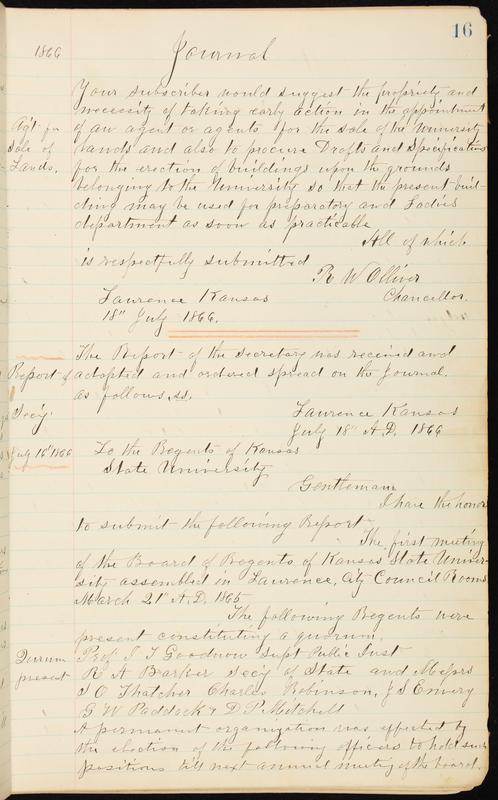 16
1866
Journal
Your subscriber would suggest the propriety and
necessity of taking early action in the appointment
Ag't for
of an agent or agents for the sale of the University
sale of
lands and also to procure Drafts and Specifications
Lands.
for the erection of buildings upon the grounds
belonging to the University so that the present buil-
ding may be used for preparatory and Ladies
department as soon as practicable
All of which
is respectfully submitted
R W Olliver
Lawrence Kansas
Chancellor.
18" July 1866.
The Report of the Secretary was received and
Report of
adopted and ordered spread on the Journal,
as follows, ss.
Sec'y.
Lawrence Kansas
July 18" A.D. 1866
July 16" 1866
To the Regents of Kansas
State University
Gentlemen
I have the honor
to submit the following Report
The first meeting
of the Board of Regents of Kansas State Univer-
sity assembled in Lawrence, City Council Rooms
March 21" A.D. 1865
The following Regents were
present constituting a quorum.
Quorum
Prof I T Goodnow Supt Public Inst
present
R A Barker Sec'y of State and Messrs
S O Thatcher Charles Robinson, J S Emery
G W Paddock & D P Mitchell
A permanent organization was effected by
the election of the following officers to hold such
positions till next annual meeting of the board.